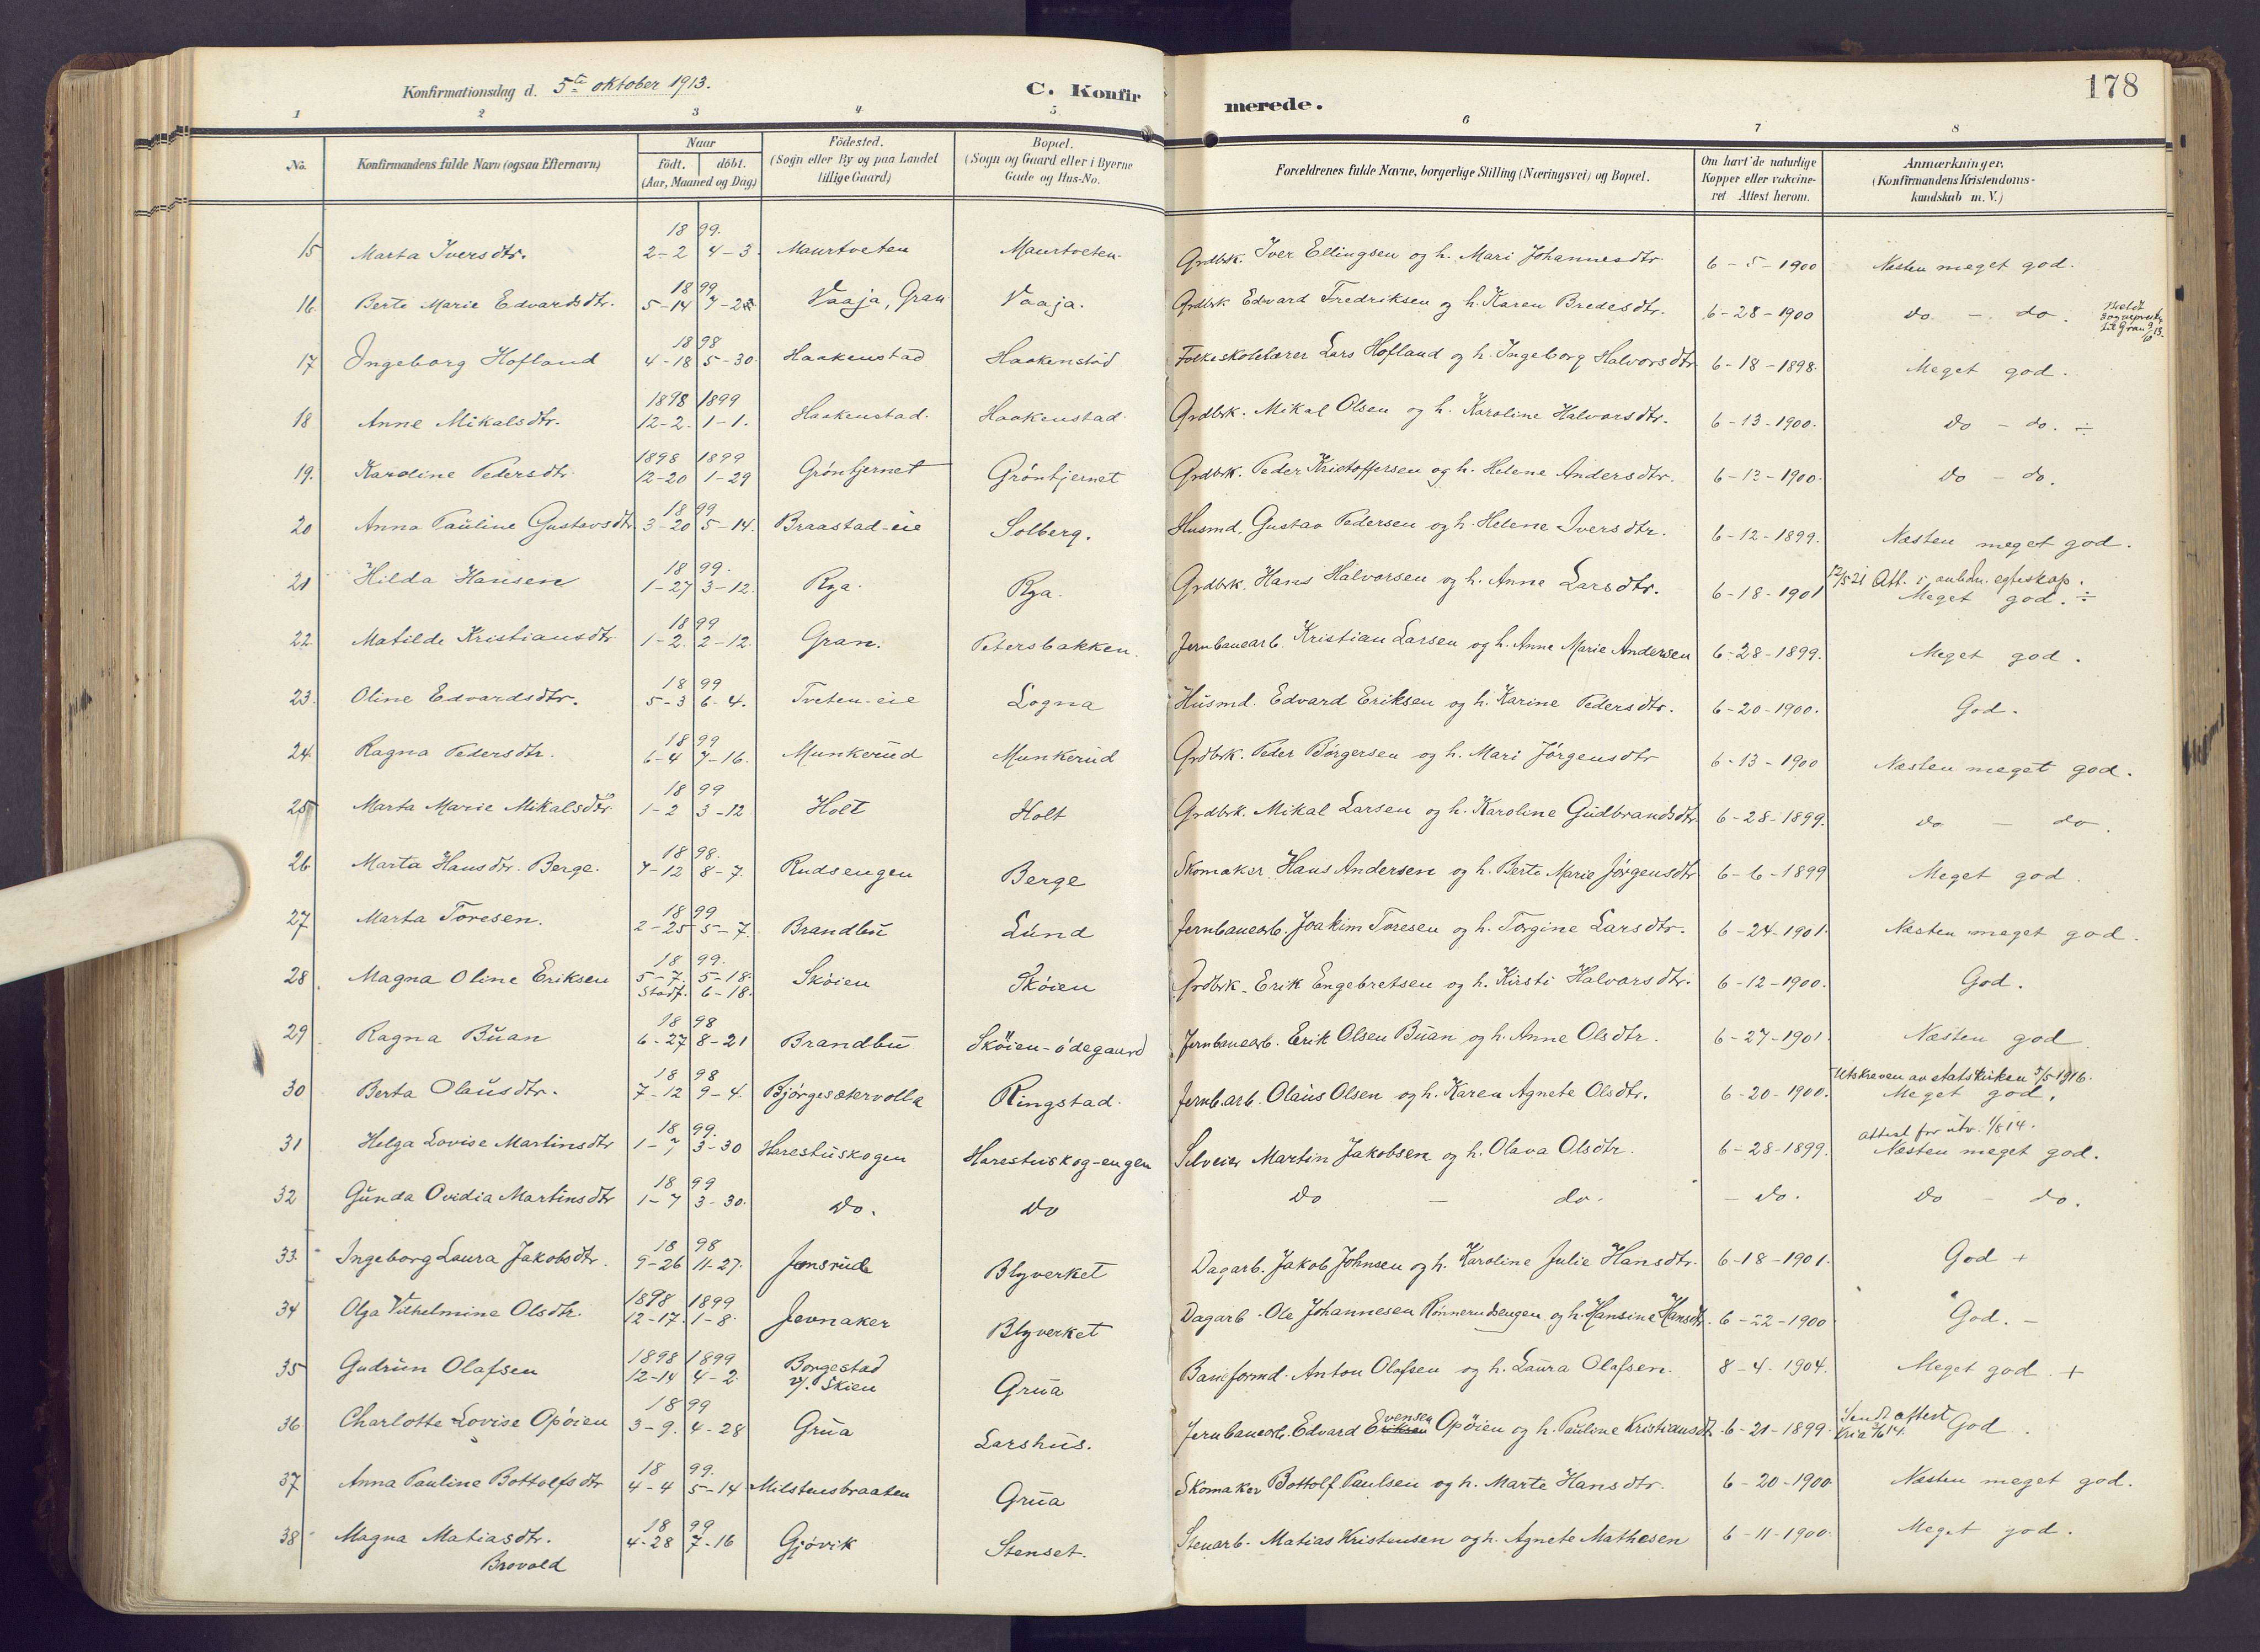 178
Konfirmationsdag d. 5te oktober 1913. C. Konfirmerede.
1 2 3 4 5 6 7 8
No. Konfirmandens fulde Navn (ogsaa Efternavn) Naar födt. döbt. (Aar, Maaned og Dag) Födested. (Sogn eller By og paa Landet tillige Gaard) Bopæl. (Sogn og Gaard eller i Byerne Gade og Hus-No. Forældrenes fulde Navne, borgerlige Stilling (Næringsvei) og Bopæl. Om havt de naturlige Kopper eller vakcineret Attest herom. Anmærkninger. (Konfirmandens Kristendomskundskab m.V.)
15 Marta Iversdtr. 1899. 2-2 4-3. Maurtveten Maurtveten. Grdbrk. Iver Ellingsen og h. Mari Johannesdtr 6-5-1900 Næsten meget god.
16. Berte Marie Edvardsdtr. 1899 5-14 7- Vaaja, Gran Vaaja. Grdbrk Edvard Fredriksen og h. Karen Bredesdtr. 6-28-1900 do - do.
17 Ingeborg Hofland 1898 4-18 5-30. Haakenstad Haakenstad Folkeskolelærer Lars Hofland og h. Ingeborg Halvorsdtr 6-18-1898. Meget god.
18 Anne Mikalsdtr. 1898 1899 12-2. 1-1. Haakenstad. Haakenstad. Grdbrk. Mikal Olsen og h. Karoline Halvorsdtr. 6-13-1900. do - do. ÷
19. Karoline Pedersdtr 1898 1899 12-20 1-29 Gröntjernet Gröntjernet Grdbrk. Peder Kristoffersen og h. Helene Andersdtr. 6-13-1900. do - do.
20 Anna Pauline Gustavsdtr 1899 3-20 5-14. Braastad-eie Solberg. Husmd. Gustav Pedersen og h. Helene Iversdtr. 6-12-1899. Næsten meget god.
21 Hilda Hansen 1899. 1-27 3-12. Rya. Rya. Grdbrk. Hans Halvorsen og h. Anne Larsdtr. 6-18-1901 12/5 21 Att. i anledn. egteskap. Meget god. ÷
22. Matilde Kristiansdtr 1899 1-2. 2-12. Gran. Petersbakken. Jernbanearb. Kristian Larsen og h. Anne Marie Andersen 6-28-1899. Meget god.
23. Oline Edvardsdtr. 1899 5-3 6-4. Tveten-eie Logna Husmd. Edvard Eriksen og h. Karine Pedersdtr. 6-20-1900. God.
24. Ragna Pedersdtr. 1899 6-4 7-16. Munkerud Munkerud Grdbrk. Peder Börgersen og h. Mari Jörgensdtr 6-13-1900 Næsten meget god.
25 Marta Marie Mikalsdtr. 1899 1-2 3-12 Holt Holt Grdbrk. Mikal Larsen og h. Karoline Gudbrandsdtr 6-28-1899. do - do.
26 Marta Hansdtr. Berge. 1898. 7-12 8-7. Rudsengen Berge Skomaker Hans Andersen og h. Berte Marie Jörgensdtr 6-6-1899 Meget god.
27 Marta Toresen. 1899 2-25 5-7. Brandbu Lund Jernbanearb. Joakim Toresen og h. Torgine Larsdtr. 6-24-1901. Næsten meget god.
28 Magna Oline Eriksen 1899. 5-7. 5-18. Stadf. 6-18. Sköien Sköien Grdbrk. Erik Engebretsen og h. Kirsti Halvorsdtr. 6-12-1900. God.
29 Ragna Buan 1898 6-27 8-21 Brandbu Sköien-ödegaard Jernbanearb. Erik Olsen Buan og h. Anne Olsdtr. 6-27-1901 Næsten god
30 Berta Olausdtr. 1898 7-12 9-4. Björgesætervolla Ringstad. Jernb.arb. Olaus Olsen og h. Karen Agnete Olsdtr. 6-20-1900. Utskreven av statskirken 5/5 1916. Meget god.
31 Helga Lovise Martinsdtr 1899. 1-7 3-30 Harestuskogen Harestuskog-engen Selveier Martin Jakobsen og h. Olava Olsdtr. 6-28-1899. attest for utv. 1/8 14. Næsten meget god.
32 Gunda Ovidia Martinsdtr 1899 1-7 3-30. Do. Do Do - do. - do. do - do.
33. Ingeborg Laura Jakobsdtr. 1898 9-26 11-27. Jonsrud Blyverket Dagarb. Jakob Johnsen og h. Karoline Julie Hansdtr. 6-18-1901. God +
34 Olga Vilhelmine Olsdtr. 1898 1899 12-17. 1-8. Jevnaker Blyverket Dagarb. Ole Johannesen Rönnerudsengen og h. Hansine Hansdtr. 6-22-1900 God. -
35 Gudrun Olafsen 1898 1899 12-14 4-2. Borgestad v/. Skien Grua Baneformd. Anton Olafsen og h. Laura Olafsen. 8-4-1904. Meget god. +
36 Charlotte Lovise Opöien 1899 3-9. 4-28 Grua Larshus. Jernbanearb. Edvard Eriksen vensen Opöien og h. Pauline Kristiansdtr. 6-21-1899. Sendt attest Kria 14. God.
37 Anna Pauline Bottolfsdtr 1899. 4-4 5-14 Milstensbraaten Grua Skomaker Bottolf Paulsen og h. Marte Hansdtr. 6-20-1900 Næsten meget god.
38 Magna Matiasdtr. Brovold 1899 4-28 7-16 Gjövik Stenset. Stenarb. Matias Kristensen og h. Agnete Mathesen 6-11-1900. Meget god.